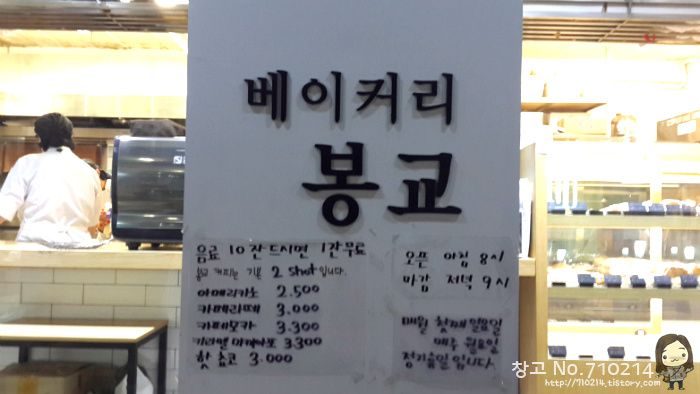 베이커리
봉교
음료 10잔 드시면 1잔 무료
봉교 커피는 기본 2 shot입니다.
아메리카노 2.500
카페라떼 3.000
카페모카 3.300
카라멜 마끼아또 3.300
핫 쵸코 3.000
오픈 아침 8시
마감 저녁 9시
매월 첫째 일요일
매주 월요일
정기휴일 입니다.
창고 No.710214
http://710214.tistory.com/